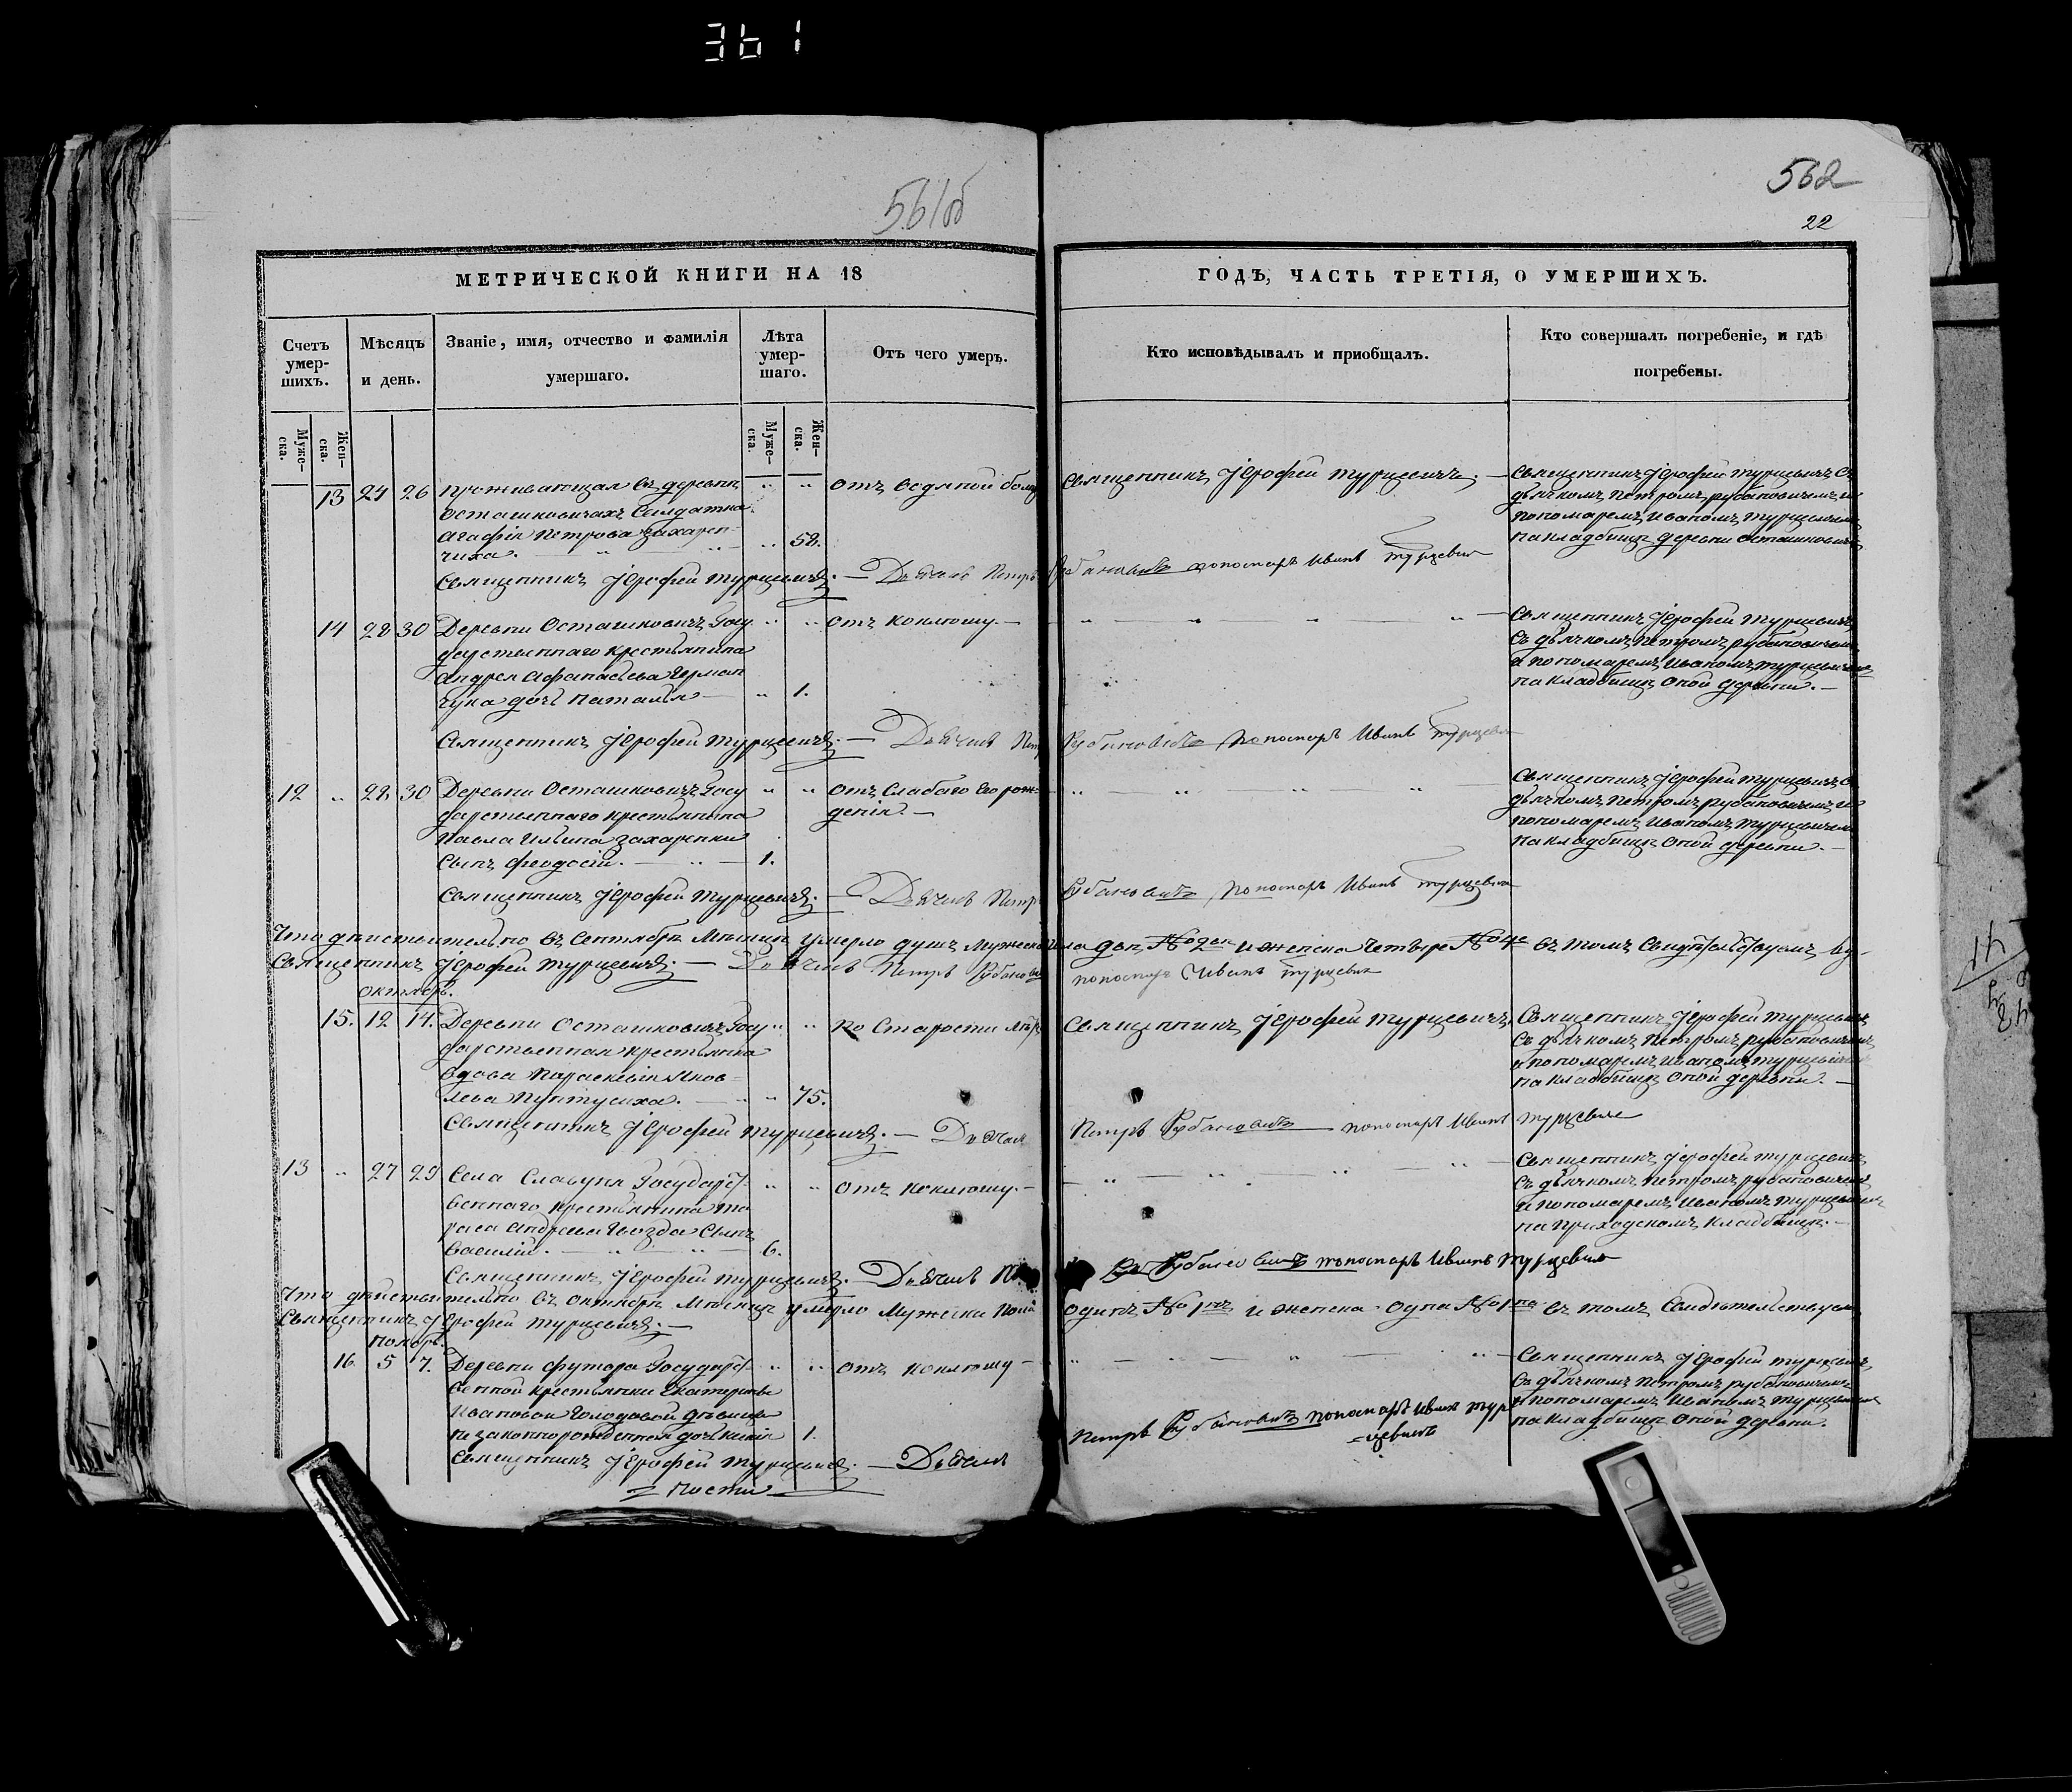 361
561об
562
22
МЕТРИЧЕСКОЙ КНИГИ НА 18
ГОДЪ, ЧАСТЬ ТРЕТІЯ, О УМЕРШИХЪ.
Счетъ умер-шихъ.
Мѣсяцъ и день.
Званіе, имя, отчество и фамилія умершаго.
Лѣта умер-шаго.
Отъ чего умеръ.
Кто исповѣдывалъ и приобщалъ.
Кто совершалъ погребеніе, и гдѣ погребены.
Муже-ска.
Жен-ска.
Муже-ска.
Жен-ска.
13 24 26 Проживающая въ деревни
Осташковичахъ Солдатка
Агафія Петрова Захарен-
чиха. 58.
отъ водяной
Священникъ Іерофей Турцевичъ.
Священникъ Іерофей Турцевичъ съ
дьячкомъ Петромъ Рубановичемъ и
пономаремъ Иваномъ Турцевичемъ
на кладбищѣ деревни Осташковичъ
Священникъ Іерофей Турцевичъ. — Дьячокъ Петръ Рубановичъ пономарь Иванъ Турцевич
14 28 30 Деревни Осташковичъ Госу
дарственнаго крестьянина
Андрея Афанасьева Герман
чука дочь Наталія 1.
отъ коклюшу. —
Священникъ Іерофей Турцевичъ
съ дьячкомъ Петромъ Рубановичемъ
и пономаремъ Иваномъ Турцевичемъ
на кладбищѣ оной деревни. —
Священникъ Іерофей Турцевичъ. — Дьячокъ Петръ Рубановичъ пономарь Иванъ Турцевич
12 28 30 Деревни Осташковичъ Госу
дарственнаго крестьянина
Павла Ильина Захаренки
сынъ Феодосій. 1.
отъ слабаго его рож-
денія. —
Священникъ Іерофей Турцевичъ съ
дьячкомъ Петромъ Рубановичемъ и
пономаремъ Иваномъ Турцевичемъ
на кладбищѣ оной деревни. —
Священникъ Іерофей Турцевичъ. — Дьячокъ Петръ Рубановичъ пономарь Иванъ Турцевич
Что дѣйствительно въ Сентябрѣ мѣсяцѣ умерло душъ мужеска пола два №2 и женска четыре №4 въ томъ свидѣтельствуемъ
Священникъ Іерофей Турцевичъ. — Дьячокъ Петръ Рубановичъ пономарь Иванъ Турцевич
октябрь.
15. 12 14. Деревни Осташковичъ Госу
дарственная крестьянка
вдова Параскевія Яков-
лева 75.
по старости лѣтъ
Священникъ Іерофей Турцевичъ
Священникъ Іерофей Турцевичъ
съ дьячкомъ Петромъ Рубановичемъ
и пономаремъ Иваномъ Турцевичемъ
на кладбищѣ оной деревни. —
Священникъ Іерофей Турцевичъ. — Дьячокъ Петръ Рубановичъ пономарь Иванъ Турцевич
13 27 29 Села Государст-
веннаго крестьянина Та
раса Андреева Гвозда сынъ
Василій. 6.
отъ коклюшу. —
Священникъ Іерофей Турцевичъ
съ дьячкомъ Петромъ Рубановичемъ
и пономаремъ Иваномъ Турцевичемъ
на приходскомъ кладбищѣ. —
Священникъ Іерофей Турцевичъ. — Дьячокъ Рубановичъ пономарь Иванъ Турцевич
Что дѣйствительно въ октябрѣ мѣсяцѣ умерло мужеска пола одинъ №1 и женска одна №1 въ томъ свидѣтельствуемъ
Священникъ Іерофей Турцевичъ. —
ноябрь.
16. 5 7. Деревни Футора Государст-
венной крестьянки Екатерины
Ивановой Голодовой дѣвицы
незаконнорожденная дочь 1.
отъ коклюшу —
Священникъ Іерофей Турцевичъ
съ дьячкомъ Петромъ Рубановичемъ
и пономаремъ Иваномъ Турцевичемъ
на кладбищѣ оной деревни.
Священникъ Іерофей Турцевичъ. — Дьячокъ Петръ Рубановичъ пономарь Иванъ Тур
=цевичъ